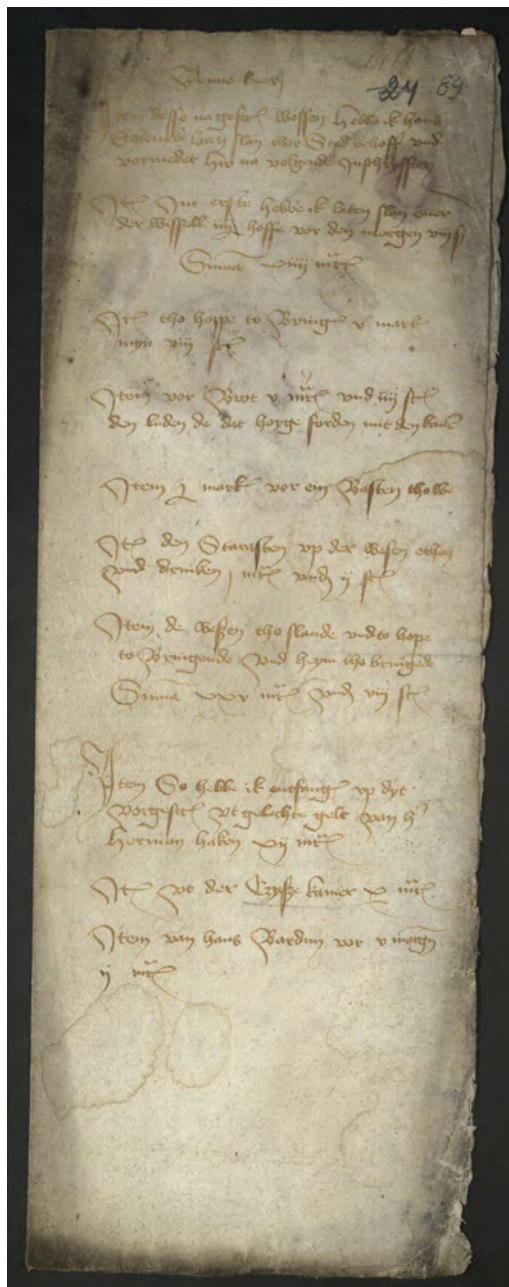 Anno lxvj
24 89
Item desse nagescr wessen hebbe ik hans
laten slan thor Stad behoff vnd
vormedet hir na volgende
It Int erste hebbe ik laten slan ouer
der wissell iiij hoffe vor den morgen viij s
Summa xviij mrc
It tho hoppe to Bring v mark
myn viij sc
Item vor Brot v mrc vnd iiij sc
den luden de dat hoyge forden mit den
Item j mark vor ein Basten thowe
It den Starosten vp der wesen ethen
vnd drinken j mrc vnd ij sc
Item de weszen tho slande vnd to hope
to Bringende vnd heym tho bringede
Summa xxx mrc vnd viij sc
Item So hebbe ik entfang vp dyt
vorgescr vt gelechte gelt van h
Herman haken xij mrc
It vt der Czysze kamer x mrc
Item van hans Bardin vor v morg
ij mrc